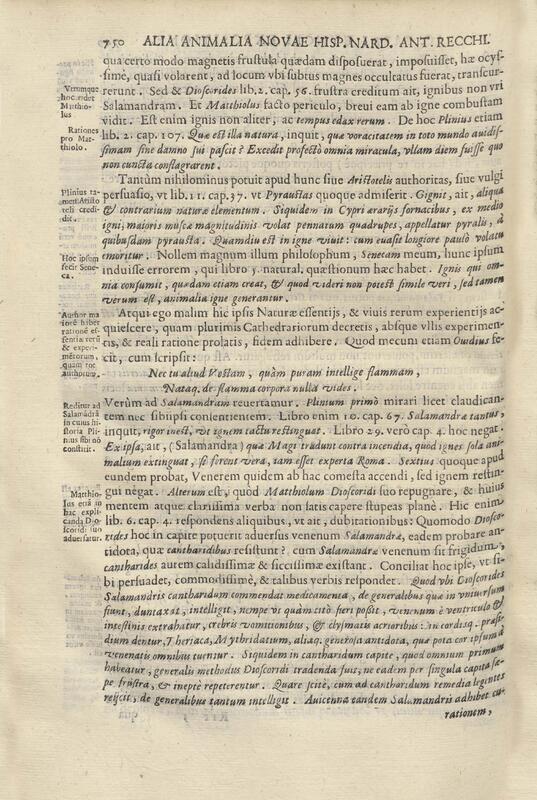 750 ALIA ANIMALIA NOVAE HISP. NARD. ANT. RECCHI.
qua certo modo magnetis frustula quædam disposuerat, imposuisset, hæ ocyſ-
ſimè, quasi volarent, ad locum vbi subtus magnes occultatus fuerat, tranſcur-
rerunt. Sed & Dioscorides lib. 2. cap. 56. frustra creditum ait, ignibus non vri
Salamandram. Et Matthiolus facto periculo, breui eam ab igne combustam
vidit. Est enim ignis non aliter, ac tempus edax rerum. De hoc Plinius etiam
lib. 2. cap. 107. Quæ est illa natura, inquit, quæ voracitatem in toto mundo auidiſ-
ſimam sine damno sui pascit? Excedit profectò omnia miracula, vllam diem fuisse quo
non cuncta conflagrarent.
Verumque
hoc ridet
Matthio-
lus
Rationes
pro Mat-
thiolo.
Tantùm nihilominus potuit apud hunc siue Aristotelis authoritas, siue vulgi
persuasio, vt lib. 11. cap. 37. vt Pyraustas quoque admiserit. Gignit, ait, aliqua
& contrarium naturæ elementum. Siquidem in Cypri ærarijs fornacibus, ex medio
igni, maioris muscæ magnitudinis volat pennatum quadrupes, appellatur pyralis, à
quibusdam pyrausta. Quamdiu est in igne viuit: cum euasit longiore paulò volatu
emoritur. Nollem magnum illum philosophum, Senecam meum, hunc ipsum
induisse errorem, qui libro 5. natural. quæstionum hæc habet. Ignis qui om-
nia consumit, quædam etiam creat, & quod videri non potest simile veri, sed tamen
verum est, animalia igne generantur.
Plinius ta-
men Aristo
teli credi-
dit.
Hoc ipsum
fecit Sene-
ca.
Atqui ego malim hic ipsis Naturæ essentijs, & viuis rerum experientijs ac-
quiescere, quam plurimis Cathedrariorum decretis, absque vllis experimen-
tis, & reali ratione prolatis, fidem adhibere. Quod mecum etiam Ouidius fe-
cit, cum scripsit:
Nec tu aliud Vestam, quàm puram intellige flammam,
Nataq. de flamma corpora nulla vides.
Author ma
iorē hibet
rationē eſ-
sentiæ rerū
& experi-
mētorum,
quam tot
authorum.
Verùm ad Salamandram reuertamur. Plinium primò mirari licet claudican-
tem nec sibiipsi consentientem. Libro enim 10. cap. 67. Salamandræ tantus,
inquit, rigor inest, vt ignem tactu restinguat. Libro 29. verò cap. 4. hoc negat.
Ex ipsa, ait, (Salamandra) quæ Magi trudunt contra incendia, quod ignes sola ani-
malium extinguat, si forent vera, iam esset experta Roma. Sextius quoque apud
eundem probat, Venerem quidem ab hac comesta accendi, sed ignem restin-
gui negat. Alterum est, quòd Matthiolum Dioscoridi suo repugnare, & huius
mentem atque clarissima verba non satis capere stupeas planè. Hic enim
lib. 6. cap. 4. respondens aliquibus, vt ait, dubitationibus: Quomodo Diosco-
rides hoc in capite potuerit aduersus venenum Salamandræ, eadem probare an-
tidota, quæ cantharidibus resistunt? cum Salamandræ venenum sit frigidum,
cantharides autem calidissimæ & siccissimæ existant. Conciliat hoc ipse, vt si-
bi persuadet, commodissimè, & talibus verbis respondet. Quod vbi Dioscorides
Salamandris cantharidum commendat medicamenta, de generalibus quæ in vniuersum
fiunt, duntaxat, intelligit, nempe vt quàm citò fieri possit, venenum è ventriculo &
intestinis extrahatur, crebris vomitionibus, & clysmatis acrioribus: In cordisq. præsi-
dium dentur, Theriaca, Mythridatum, aliaq. generosa antidota, quæ pota cor ipsum à
venenatis omnibus tuentur. Siquidem in cantharidum capite, quod omnium primum
habeatur, generalis methodus Dioscoridi tradenda fuis, ne eadem per singula capita sæ-
pe frustra, & ineptè repeterentur. Quare scitè, cum ad cantharidum remedia legentes
reijcit, de generalibus tantum intelligit. Auicenna tandem Salamandris adhibet cu-
rationem,
Reditur ad
Salamādrā
in cuius hi-
storia Pli-
nius sibi nō
constitit.
Matthio-
lus etiā in
hac expli-
canda Dio
scoridi suo
aduersatur.